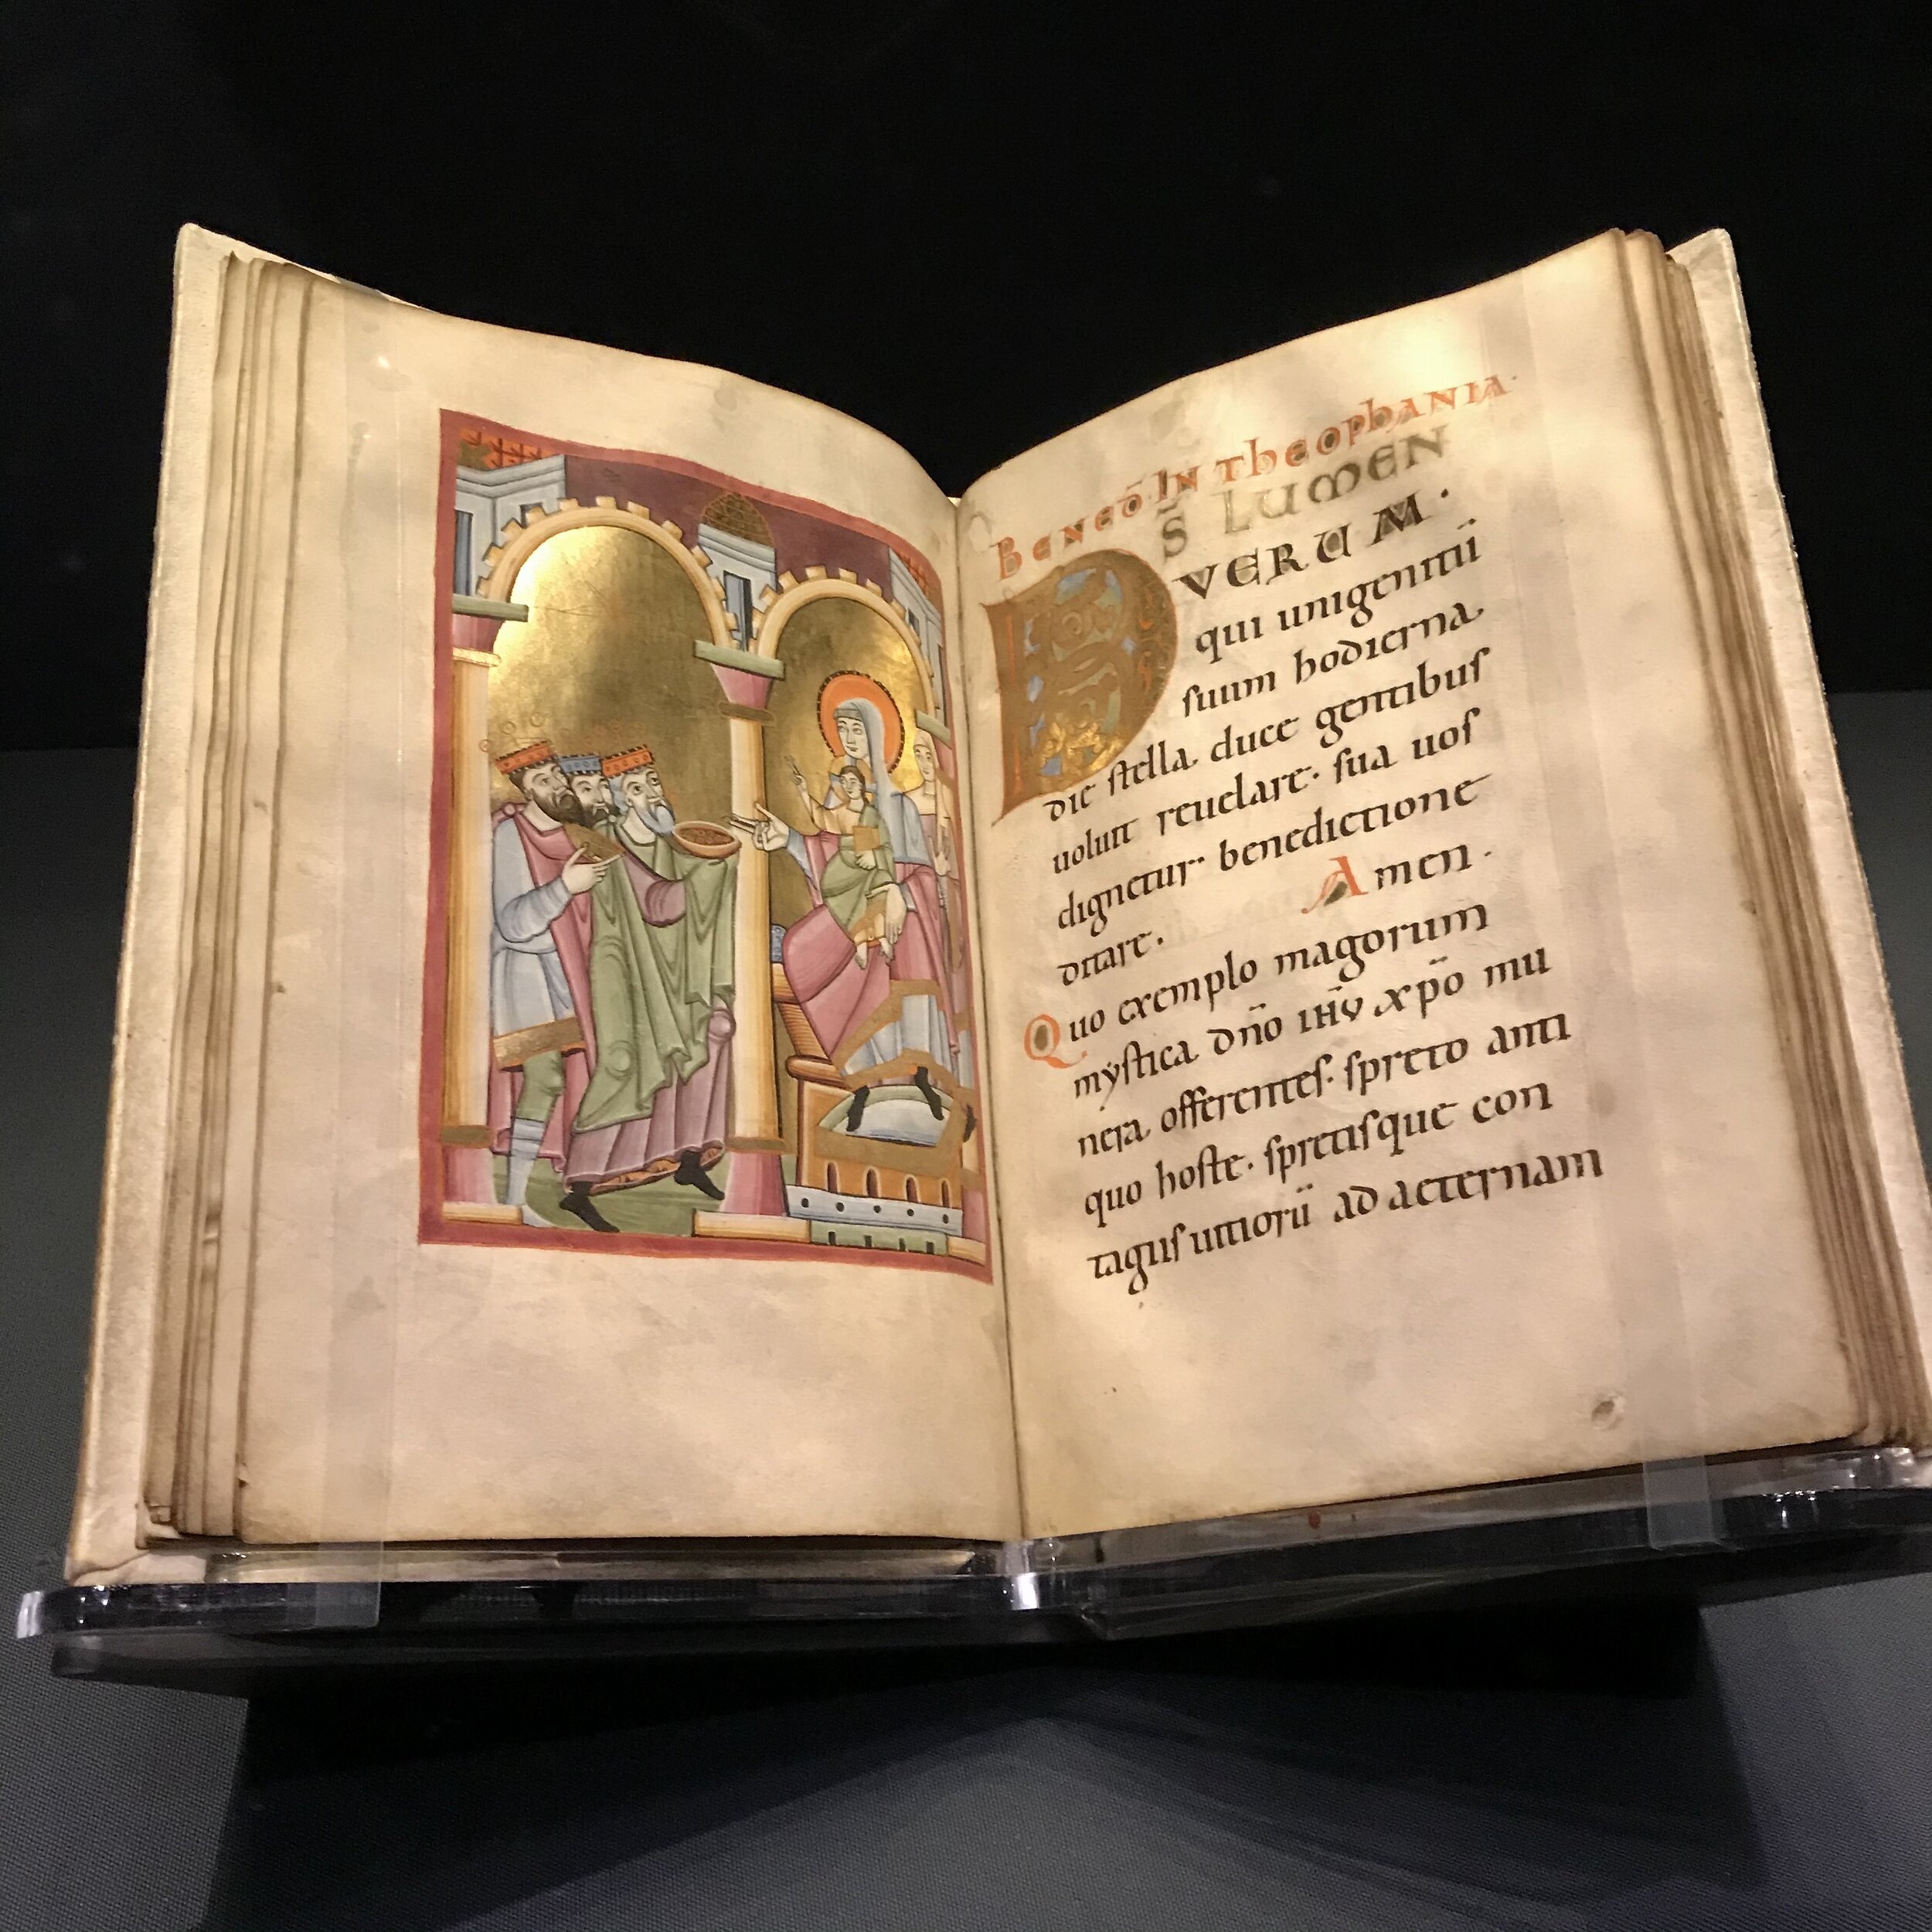 BENED̄ IN TheOPhANIA·
DS̄ LUMEN
VERUM·
qui unigenitū
ſuum hodierna
die ſtella duce gentibuſ
uoluit reuelare· ſua uoſ
dignetur· benedictione
ditare. Amen·
Quo exemplo magorum
mẏſtica dn̄o IHV̄ xp̄o mu
nera offerenteſ· ſpreto anti
quo hoſte· ſpretiſque con
tagiiſ uitiorū ad aeternam